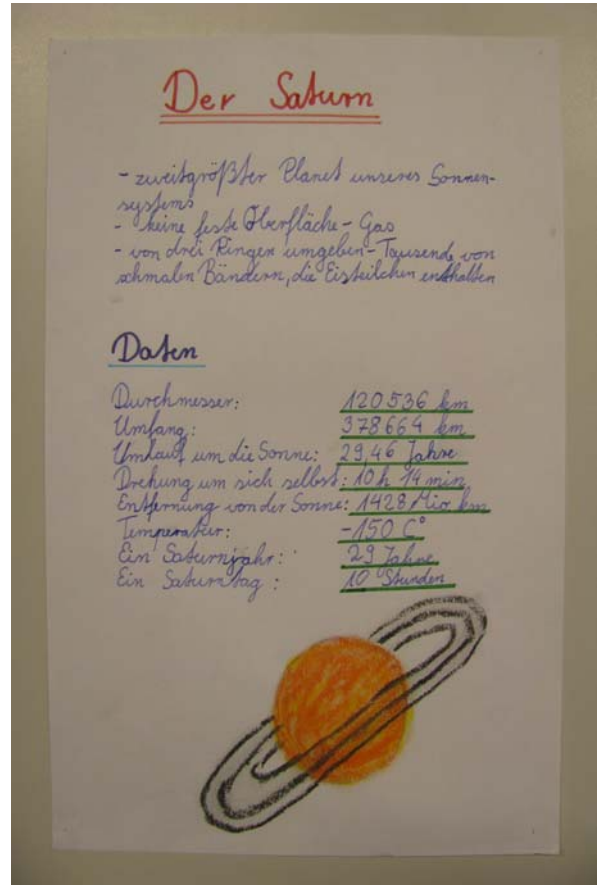 Der Saturn
- zweitgrößter Planet unseres Sonnen-
systems
- keine feste Oberfläche - Gas
- von drei Ringen umgeben - Tausende von
schmalen Bändern, die Eisteilchen enthalten
Daten
Durchmesser: 120536 km
Umfang: 378664 km
Umlauf um die Sonne: 29,46 Jahre
Drehung um sich selbst: 10 h 14 min
Entfernung von der Sonne: 1428 Mio km
Temperatur: -150 C°
Ein Saturnjahr: 29 Jahre
Ein Saturntag: 10 Stunden